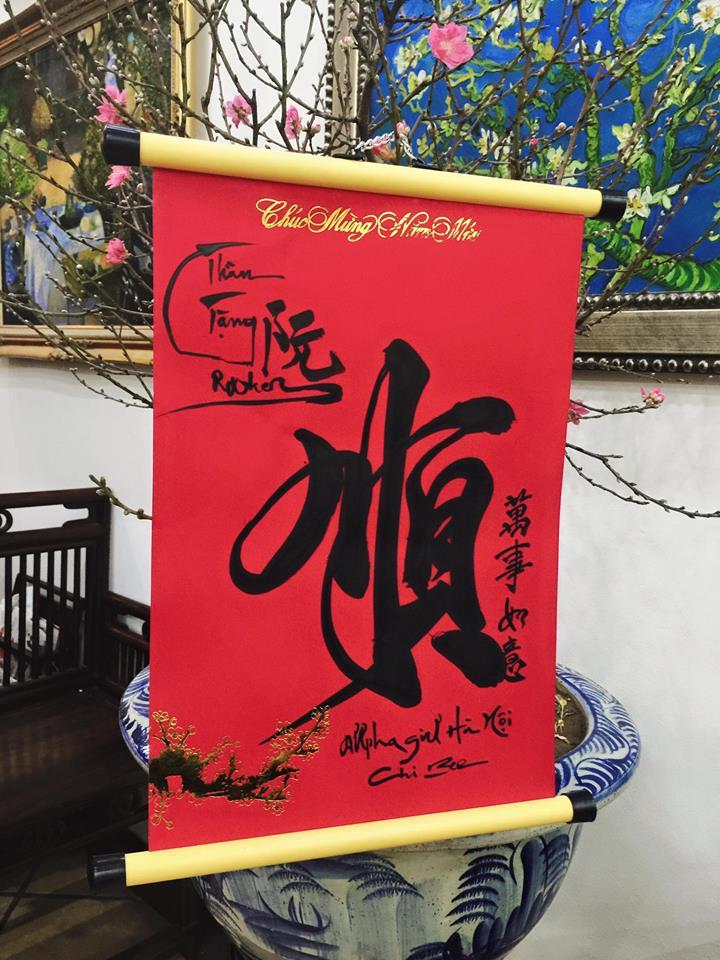 Chúc Mừng Năm Mới
Thân
Tặng
阮
Rooker
順
萬事如意
Allpha girl Hà Nội
Chi Bee